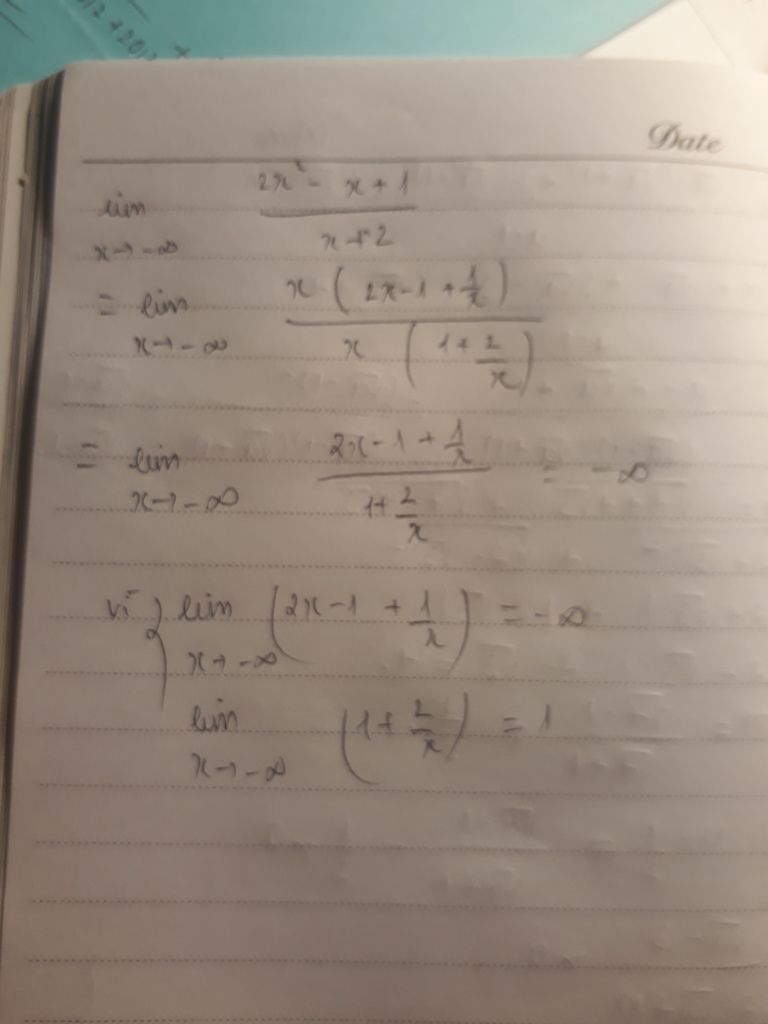 Date
lim x→-∞ (2x² - x + 1)/(x + 2)
= lim x→-∞ x(2x - 1 + 1/x) / x(1 + 2/x)
= lim x→-∞ (2x - 1 + 1/x)/(1 + 2/x) = -∞
vì { lim x→-∞ (2x - 1 + 1/x) = -∞
lim x→-∞ (1 + 2/x) = 1